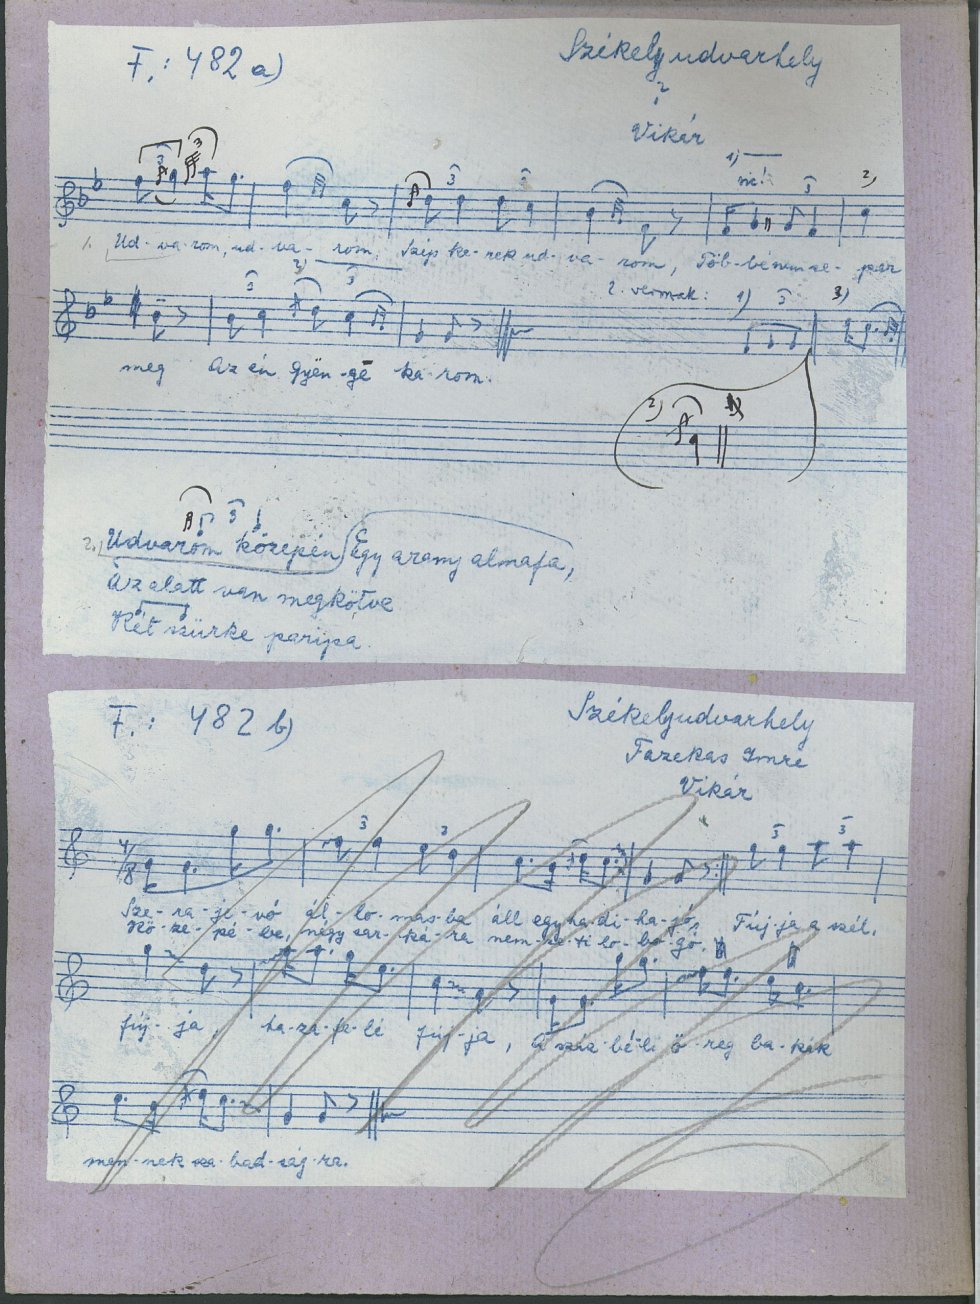 F.: 482 a)
Székelyudvarhely
?
Vikár
1)
ne!
3
2)
1. Ud-va-rom, ud-va-rom, Szép ke-rek ud-va-rom, Töb-be nem se-per
2. versszak: 1) 3 3)
meg Az én gyën-gé ka-rom.
2)
2.) Udvarom közepén Egy arany almafa,
Az alatt van megkötve
Két szürke paripa.
F.: 482 b)
Székelyudvarhely
Fazekas Imre
Vikár
4/8
Sze-ra-je-vó ál-lo-más-ba áll egy ha-di-ha-jó, Fúj-ja a szél,
Kö-ze-pé-be, négy sar-ká-ra nem-ze-ti lo-bo-gó.
fúj-ja, ha-za-fe-lé fúj-ja, A száz-bé-li ö-reg ba-kák
men-nek sza-bad-ság-ra.